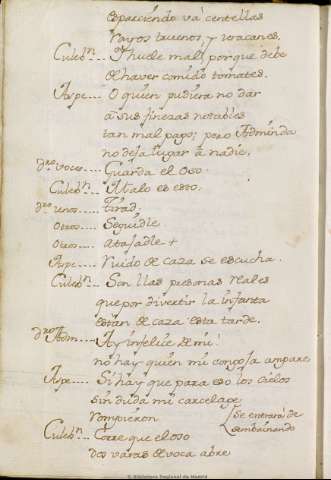 esparciendo va centellas
rayos truenos, y uracanes.
Culebn. Y huele mal, porque debe
de haver comido tomates.
Aspe.... O quien pudiera no dar
à sus finezas notables
tan mal pago; pero Adminda
no deja lugar à nadie.
dro voces.... Guarda el Oso.
Culebn.. Malo es esso.
dro unos.... Tirad.
Otros.... Seguidle.
Otros.... atajadle +
Aspe.... Ruido de caza se escucha.
Culebn... Son llas personas reales
que por divertir la infanta
estàn de caza esta tarde.
dro Adm.... Ay infelice de mi!
no hay quien mi congoja ampare
Aspe.... Si hay que para eso los cielos
sin duda mi carcelage
rompieron
Se entrará desembainando
Culebn.. Corre que el oso
dos varas de voca abre
Biblioteca Regional de Madrid